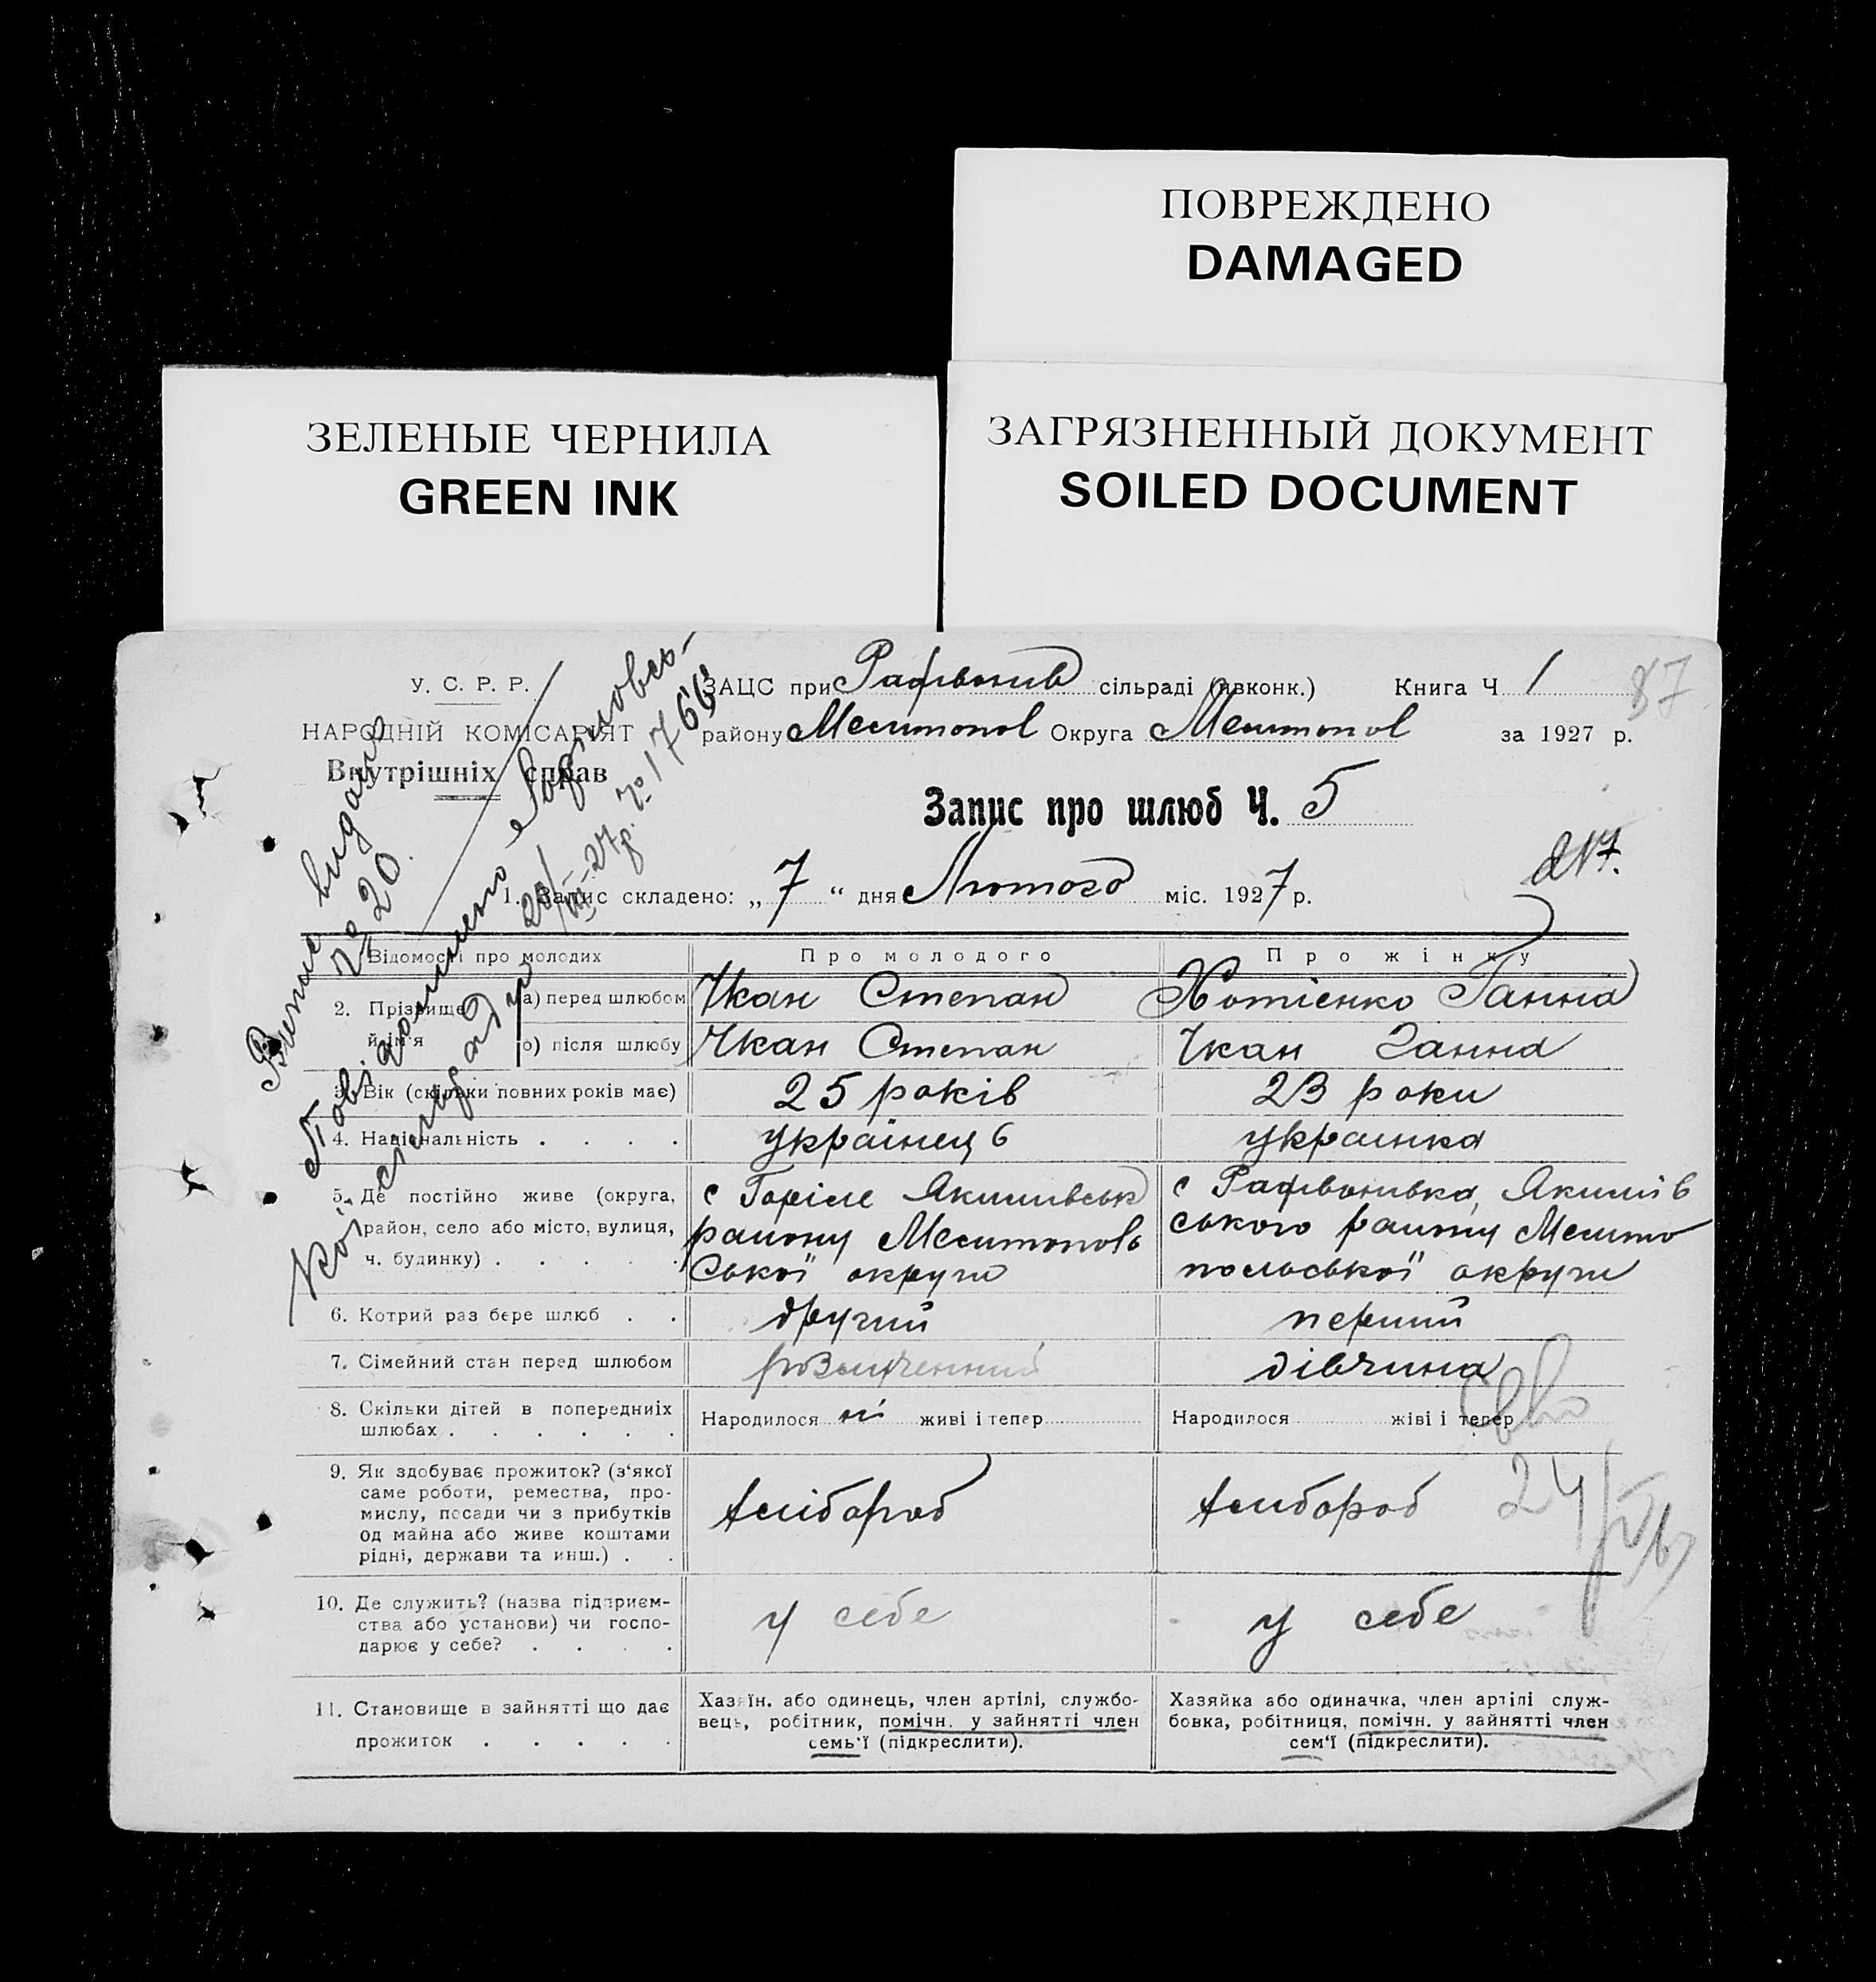 ПОВРЕЖДЕНО
DAMAGED
ЗЕЛЕНЫЕ ЧЕРНИЛА
GREEN INK
ЗАГРЯЗНЕННЫЙ ДОКУМЕНТ
SOILED DOCUMENT
У. С. Р. Р.
НАРОДНІЙ КОМІСАРІЯТ
Внутрішніх справ
ЗАЦС при сільраді (явконк.) Книга Ч 1 87
району Мелитопол Округа Мелитопол за 1927 р.
Запис про шлюб Ч. 5
1. Запис складено: „7“ дня Лютого міс. 1927 р.
Випис видано
№ 20.
Повідомлено
№ 1766
Відомості про молодих Про молодого Про жінку
2. Прізвище й ім'я
а) перед шлюбом Чкан Степан Хотієнко Ганна
б) після шлюбу Чкан Степан Чкан Ганна
3. Вік (скільки повних років має) 25 років 23 роки
4. Національність . . . . українец украинка
5. Де постійно живе (округа, район, село або місто, вулиця, ч. будинку) . . . . .
с Горіле Якимівськ
району Мелитополь
ської округи
с Якимів
ського району Мелито
польської округи
6. Котрий раз бере шлюб . . другий перший
7. Сімейний стан перед шлюбом дівчина
8. Скільки дітей в попередниіх шлюбах . . . . . .
Народилося ні живі і тепер
Народилося жіві і тепер
9. Як здобуває прожиток? (з'якої
саме роботи, ремества, про-
мислу, посади чи з прибутків
од майна або живе коштами
рідні, держави та инш.) . .
хлібороб хлибороб
10. Де служить? (назва підприєм-
ства або установи) чи госпо-
дарює у себе? . . . .
у себе у себе
11. Становище в зайнятті що дає
прожиток . . . . .
Хазяїн. або одинець, член артілі, службо-
вець, робітник, помічн. у зайнятті член
семь'ї (підкреслити).
Хазяйка або одиначка, член артілі служ-
бовка, робітниця, помічн. у зайнятті член
сем'ї (підкреслити).